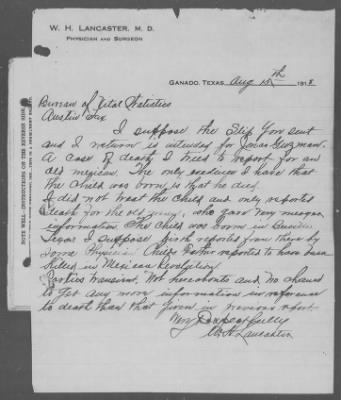 W. H. LANCASTER, M. D.
PHYSICIAN AND SURGEON
GANADO, TEXAS, Aug 15th 1918
Bureau of Vital Statistics
Austin Tex
I suppose the slip you sent
and I return is intended for Jonas Guzman.
A case of death I tried to report for an
old mexican. The only evidence I have that
the child was born is that he died.
I did not treat the child and only reported
death for the old, who gave very meager
information. The child was born in
Texas I suppose birth reported from there by
some Physician Childs Father reported to have been
killed in Mexican Revolution
Parties transient. Not here and no chance
to get any more information in reference
to death than that given in previous report.
Very Respectfully
W H Lancaster
NOTE WELL—INSTRUCTIONS ON THE REVERSE SIDE